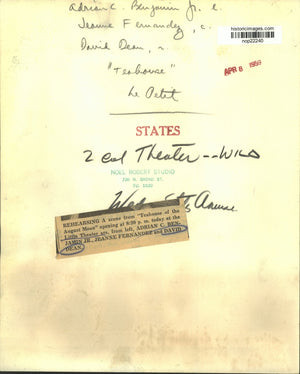 Adrian C. Benjamin Jr. l.
historicimages.com
nop22240
Jeanne Fernandez, c.
David Dean, r.
"Teahouse"
Le Petit
APR 8 1959
STATES
2 col Theater--Wild
NOEL ROBERT STUDIO
ST.
Amuse
REHEARSING A scene from "Teahouse of the
August Moon" opening at 8:30 p. m. today at the
Little Theater are, from left, ADRIAN C. BEN-
JAMIN JR., JEANNE FERNANDEZ and DAVID
DEAN.